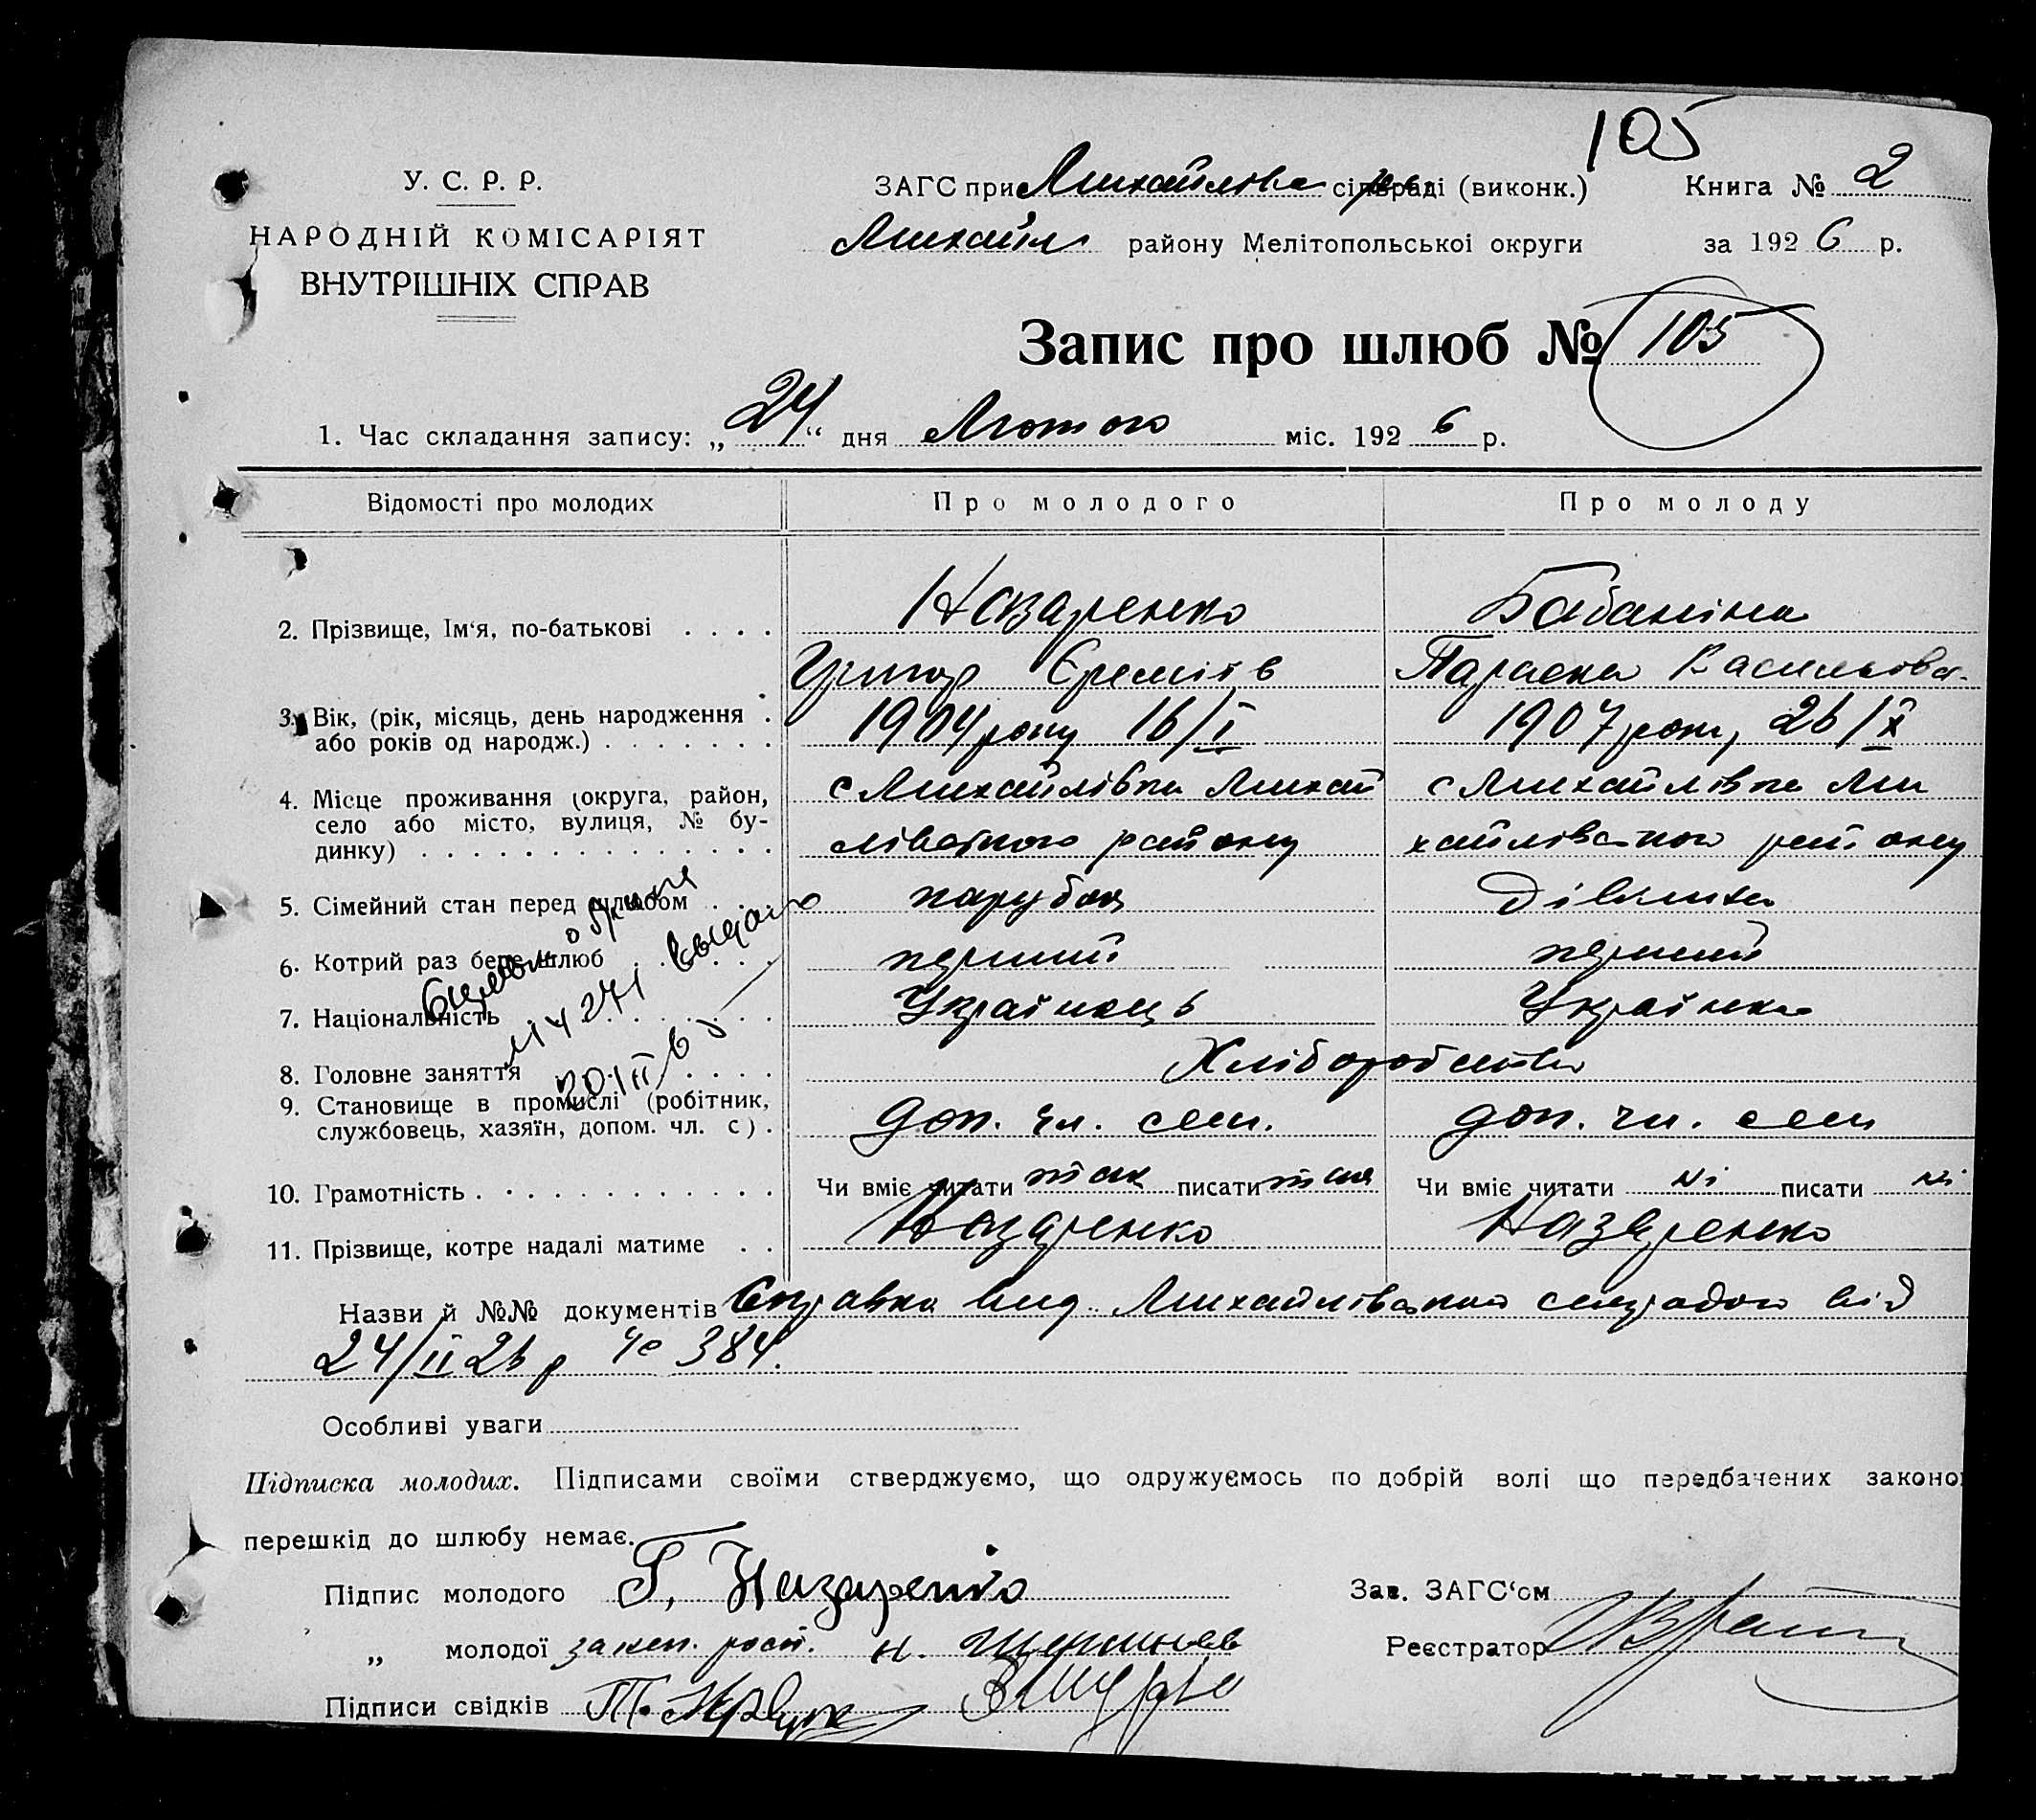 105
У. С. Р. Р.
НАРОДНІЙ КОМІСАРІЯТ
ВНУТРІШНІХ СПРАВ
ЗАГС при Михайлівс сільраді (виконк.) Книга № 2
Михайл району Мелітопольської округи за 1926 р.
Запис про шлюб № 105
1. Час складання запису: „24“ дня Лютого міс. 1926 р.
Відомості про молодих Про молодого Про молоду
2. Прізвище, Ім'я, по-батькові Назаренко Бабаніна
Григор Єреміїв Параска Васильова
3. Вік, (рік, місяць, день народження або років од народж.) 1904 року 16/I 1907 року 26/IX
4. Місце проживання (округа, район, с Михайлівка Михай с Михайлівка Ми
село або місто, вулиця, № бу-
динку) лівського району хайлівського району
5. Сімейний стан перед шлюбом парубок дівчина
6. Котрий раз бере шлюб перший перший
7. Національність Українець Українка
8. Головне заняття Хліборобство
9. Становище в промислі (робітник,
службовець, хазяїн, допом. чл. с). доп. чл. сем. доп. чл. сем
10. Грамотність Чи вміє читати так писати так Чи вміє читати ні писати ні
11. Прізвище, котре надалі матиме Назаренко Назаренко
о браке
выдано
Назви й №№ документів Справка вид. Михайлівською сільрадою від
24/II 26 р № 384.
Особливі уваги
Підписка молодих. Підписами своїми стверджуємо, що одружуємось по добрій волі що передбачених законо
перешкід до шлюбу немає.
Підпис молодого Г. Назаренко Зав. ЗАГС'ом
„ молодої Реєстратор
Підписи свідків